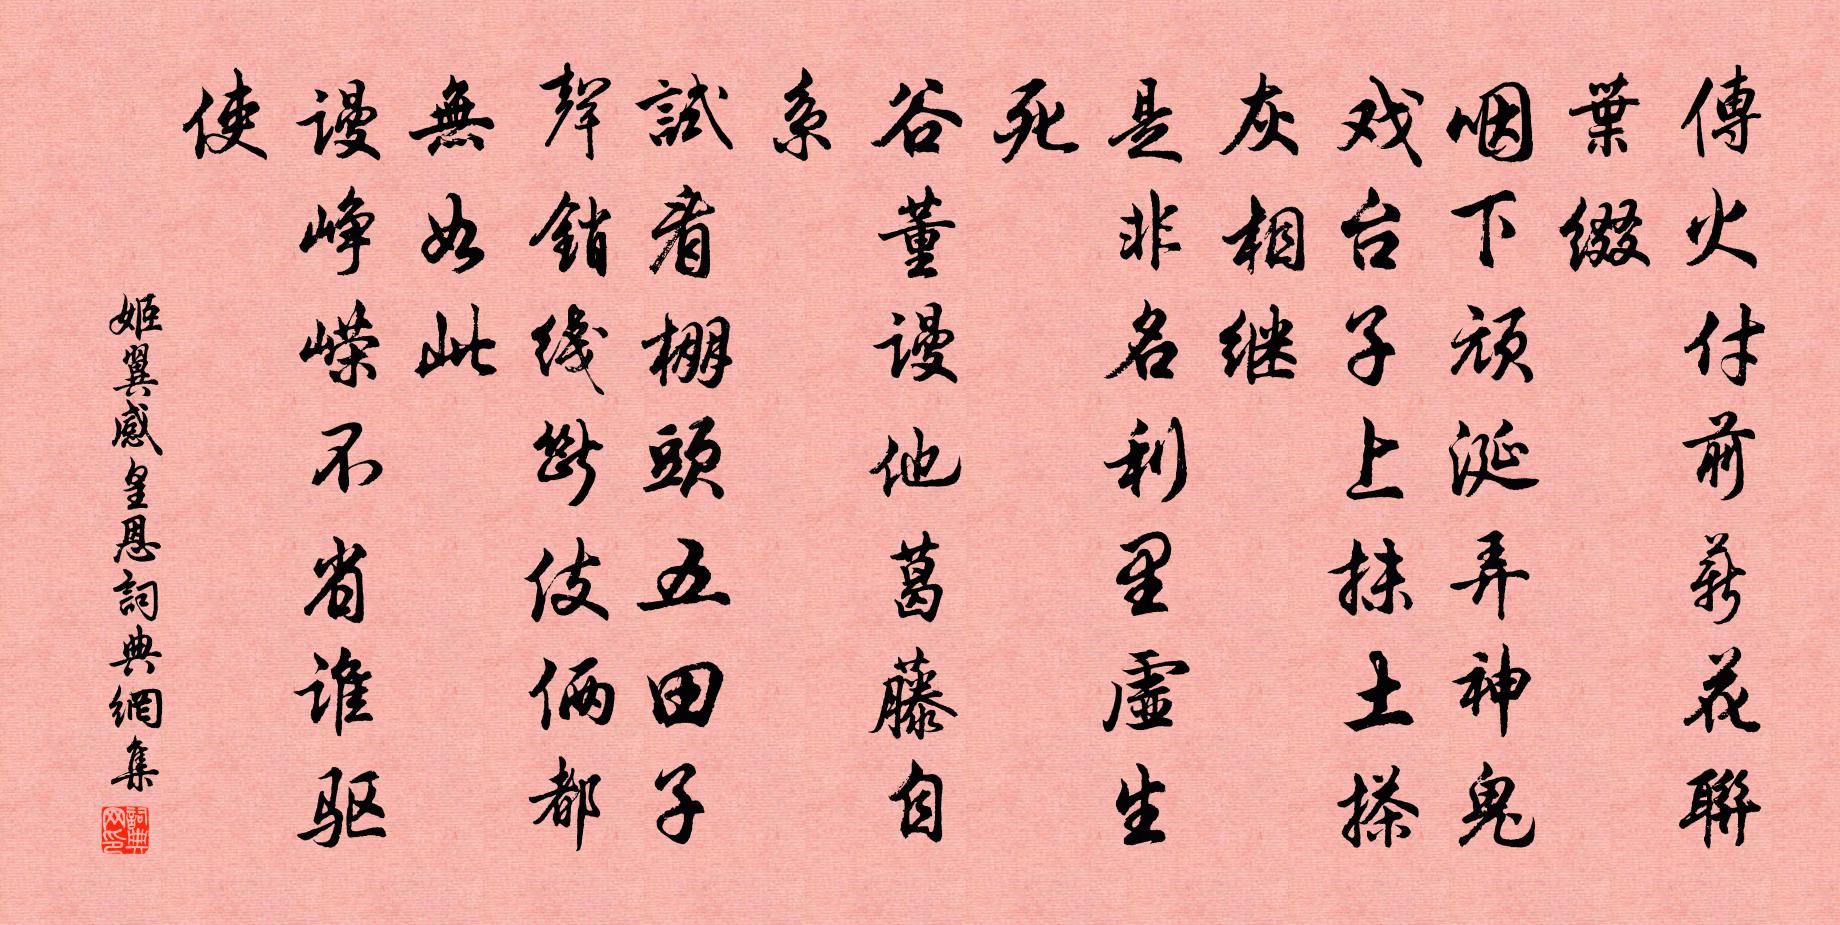 傳火付前薪花聯
葉綴
咽下頑涎弄神鬼
戏台子上抹土搽
灰相继
是非名利里虛生
死
谷董謾他葛藤自
系
試看棚頭五田子
聲銷线斷伎倆都
無如此
謾峥嵘不省谁驱
使
姬翼感皇恩詞典網集
詞典网印